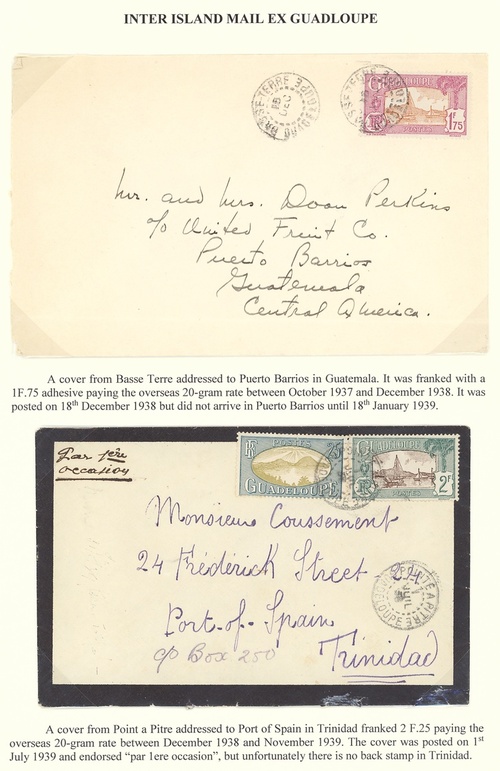 INTER ISLAND MAIL EX GUADLOUPE
BASSE-TERRE
GUADELOUPE
DEC
GUADELOUPE
RF
POSTES
1F75
Mr. and Mrs. Doan Perkins
c/o United Fruit Co.
Puerto Barrios
Guatemala
Central America.
A cover from Basse Terre addressed to Puerto Barrios in Guatemala. It was franked with a
1F.75 adhesive paying the overseas 20-gram rate between October 1937 and December 1938. It was
posted on 18th December 1938 but did not arrive in Puerto Barrios until 18th January 1939.
Par 1ère
occasion
RF
POSTES
GUADELOUPE
GUADELOUPE
RF
POSTES
2F
Monsieur Coussement
24 Frédérick Street
Port-of-Spain
c/o Box 250
Trinidad
POINTE A PITRE
JUIL
GUADELOUPE
A cover from Point a Pitre addressed to Port of Spain in Trinidad franked 2 F.25 paying the
overseas 20-gram rate between December 1938 and November 1939. The cover was posted on 1st
July 1939 and endorsed "par 1ere occasion", but unfortunately there is no back stamp in Trinidad.